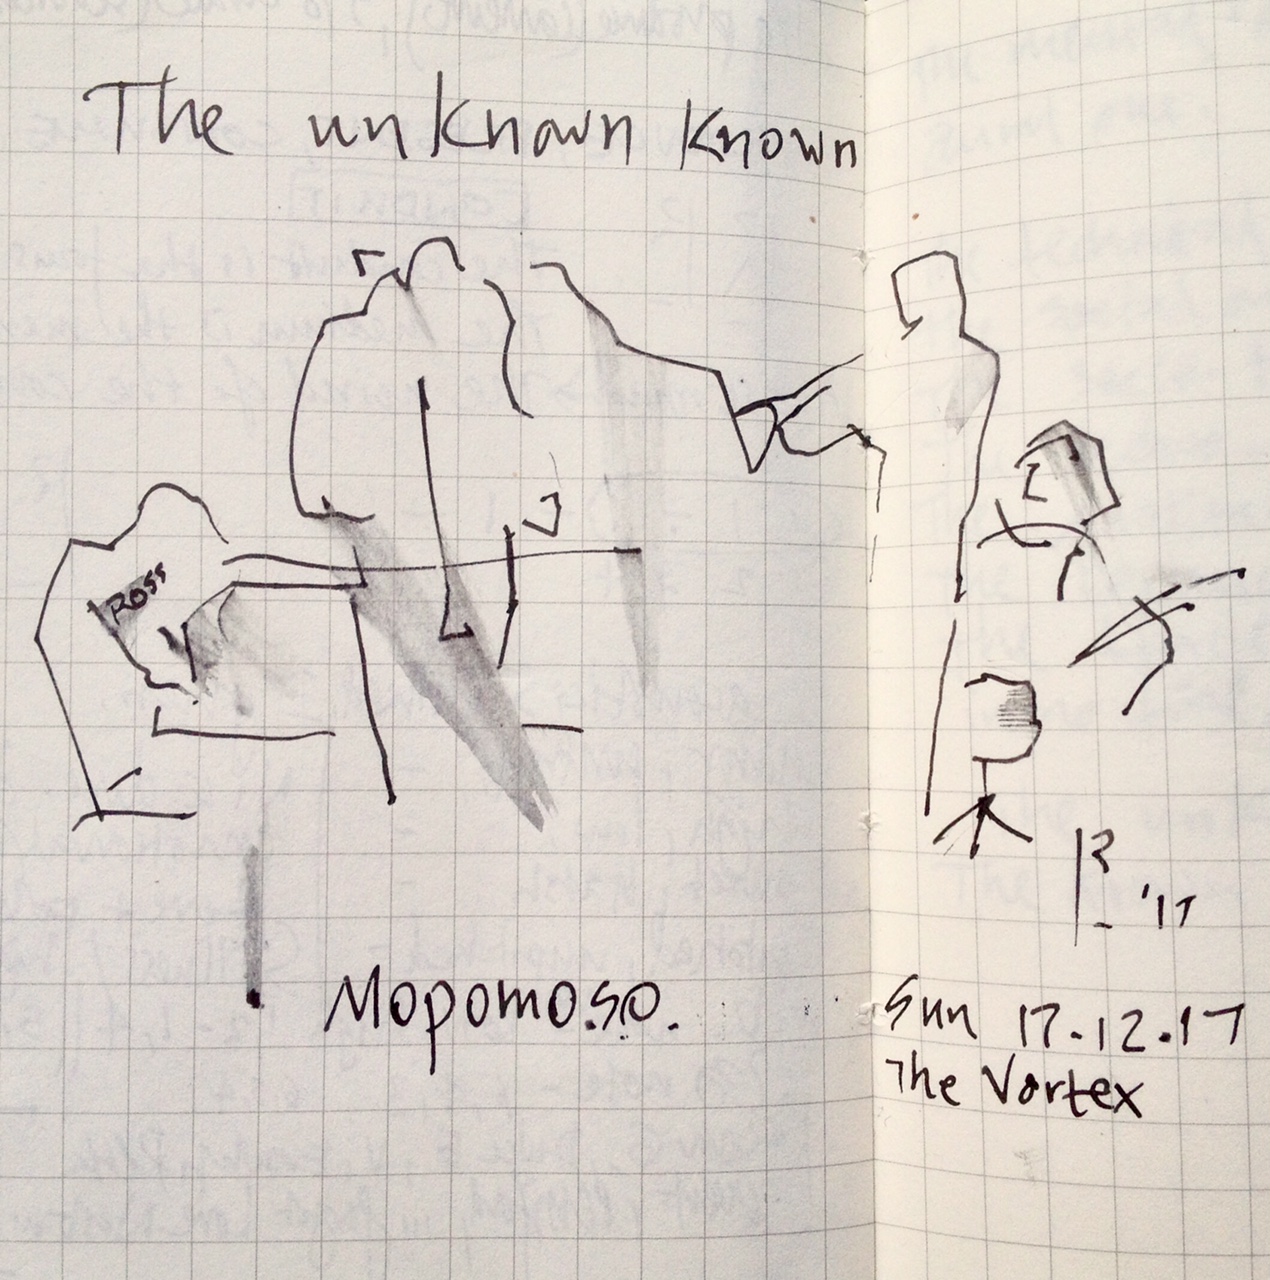 The unknown known
ROSS
'17
Mopomoso.
Sun 17.12.17
The Vortex